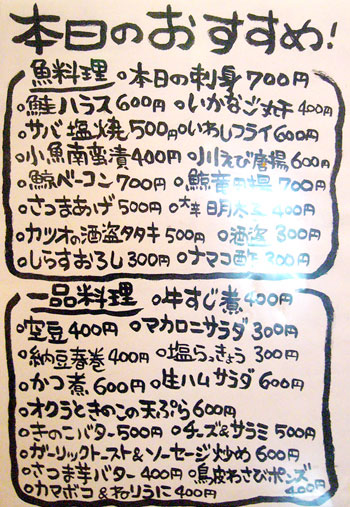 本日のおすすめ!
魚料理 ○本日の刺身700円
○鮭ハラス600円 ○いかなご丸干400円
○サバ塩焼500円 ○いわしフライ600円
○小魚南蛮漬400円 ○川えび唐揚600円
○鯨ベーコン700円 ○鯨竜田揚700円
○さつまあげ500円 ○大辛明太子400円
○カツオの酒盗タタキ500円 ○酒盗300円
○しらすおろし300円 ○ナマコ酢300円
一品料理 ○牛すじ煮400円
○空豆400円 ○マカロニサラダ300円
○納豆春巻400円 ○塩らっきょう300円
○かつ煮600円 ○生ハムサラダ600円
○オクラときのこの天ぷら600円
○きのこバター500円 ○チーズ&サラミ500円
○ガーリックトースト&ソーセージ炒め600円
○さつま芋バター400円 ○鳥皮わさびポンズ400円
○カマボコ&ねりうに400円